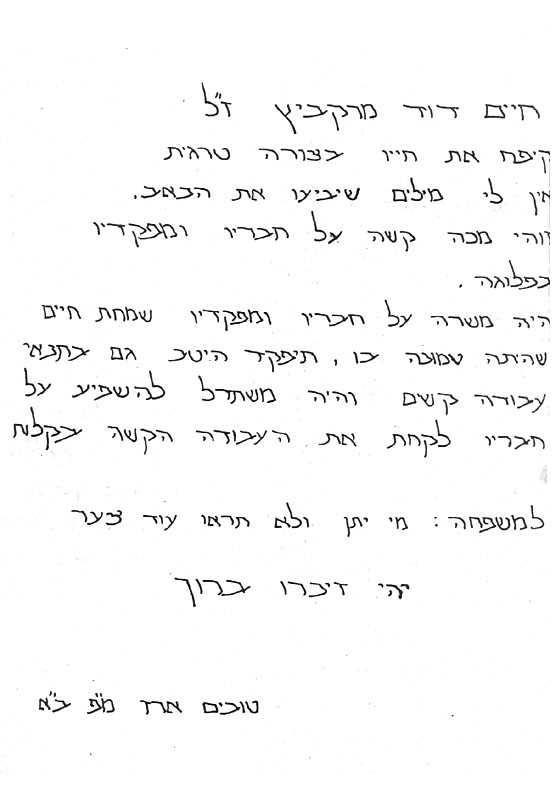 חיים דוד מרקביץ ז"ל
קיפח את חייו בצורה טרגית
אין לי מילים שיביעו את הכאב.
זוהי מכה קשה על חבריו ומפקדיו
בפלוגה.
היה משרה על חבריו ומפקדיו שמחת חיים
שהיתה טמונה בו, תיפקד היטב גם בתנאי
עבודה קשים והיה משתדל להשפיע על
חבריו לקחת את העבודה הקשה בקלות
למשפחה: מי יתן ולא תראו עוד צער
יהי זיכרו ברוך
טובים ארז מ"פ ב"א